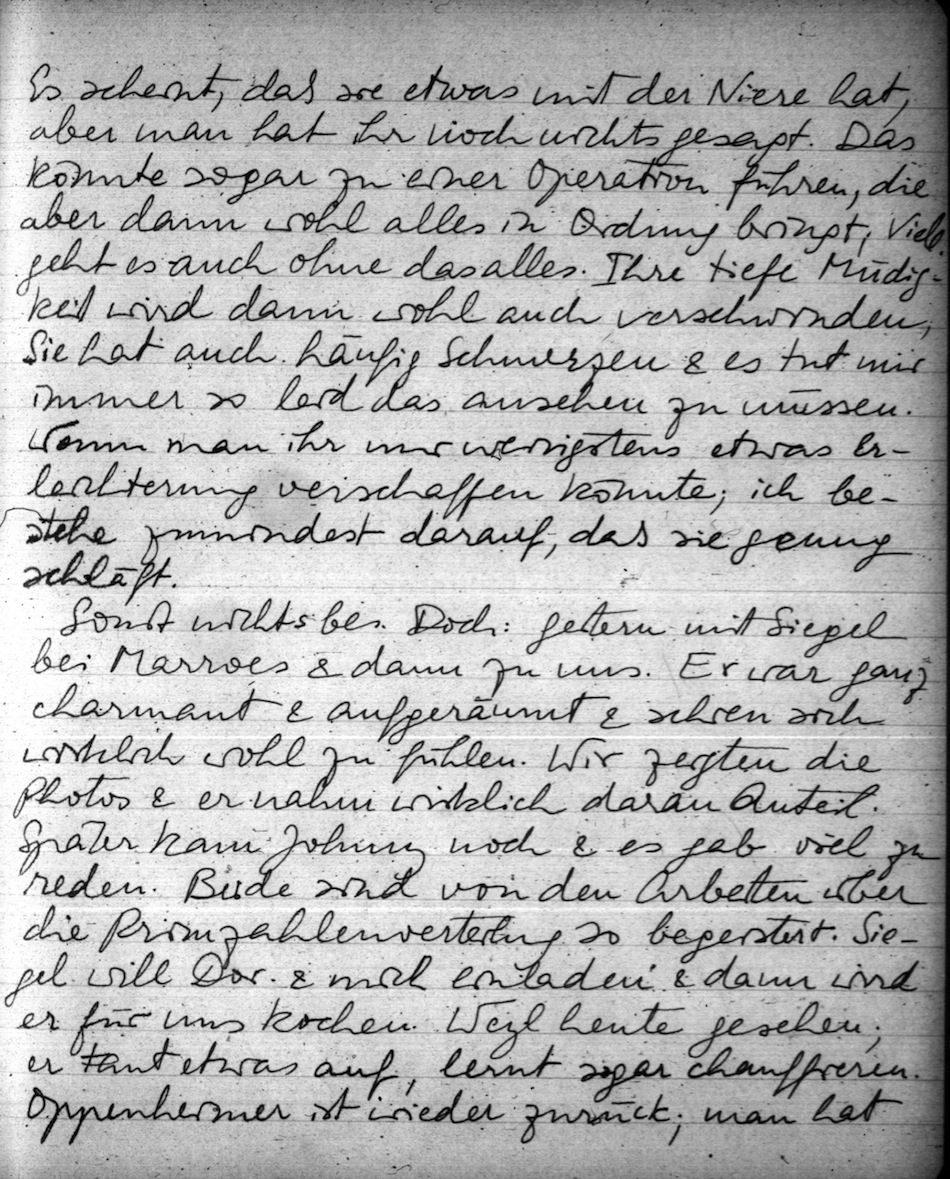 Es scheint, daß sie etwas mit der Niere hat,
aber man hat ihr noch nichts gesagt. Das
könnte sogar zu einer Operation führen, die
aber dann wohl alles in Ordnung bringt, Viell.
geht es auch ohne das alles. Ihre tiefe Müdig-
keit wird dann wohl auch verschwinden,
Sie hat auch häufig Schmerzen & es tut mir
immer so leid das ansehen zu müssen.
Wenn man ihr nur wenigstens etwas Er-
leichterung verschaffen könnte; ich be-
stehe zumindest darauf, daß sie genug
schläft.
Sonst nichts bes. Doch: gestern mit Siegel
bei Marroes & dann zu uns. Er war ganz
charmant & aufgeräumt & schien sich
wirklich wohl zu fühlen. Wir zeigten die
Photos & er nahm wirklich daran Anteil.
Später kam Johnny noch & es gab viel zu
reden. Beide sind von den Arbeiten über
die Primzahlenverteilung so begeistert. Sie-
gel will Dor. & mich einladen & dann wird
er für uns kochen. Weyl heute gesehen;
er taut etwas auf, lernt sogar chauffieren.
Oppenheimer ist wieder zurück; man hat